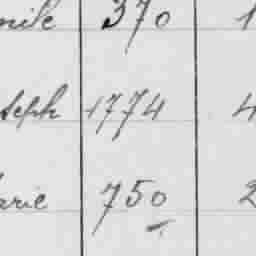 mile 370 1
seph 1774 4
arie 750 2